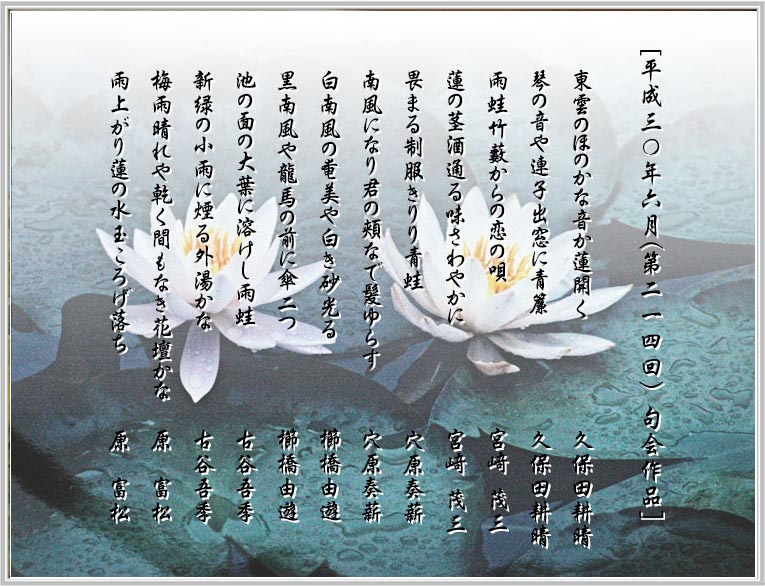 ［平成三〇年六月（第二一四回）句会作品］
東雲のほのかな音か蓮開く　久保田耕晴
琴の音や連子出窓に青簾　久保田耕晴
雨蛙竹藪からの恋の唄　宮﨑　茂三
蓮の茎酒通る味さわやかに　宮﨑　茂三
畏まる制服きりり青蛙　穴原奏薪
南風になり君の頬なで髪ゆらす　穴原奏薪
白南風の奄美や白き砂光る　櫛橋由遊
黒南風や龍馬の前に傘二つ　櫛橋由遊
池の面の大葉に溶けし雨蛙　古谷吾季
新緑の小雨に煙る外湯かな　古谷吾季
梅雨晴れや乾く間もなき花壇かな　原　富松
雨上がり蓮の水玉ころげ落ち　原　富松